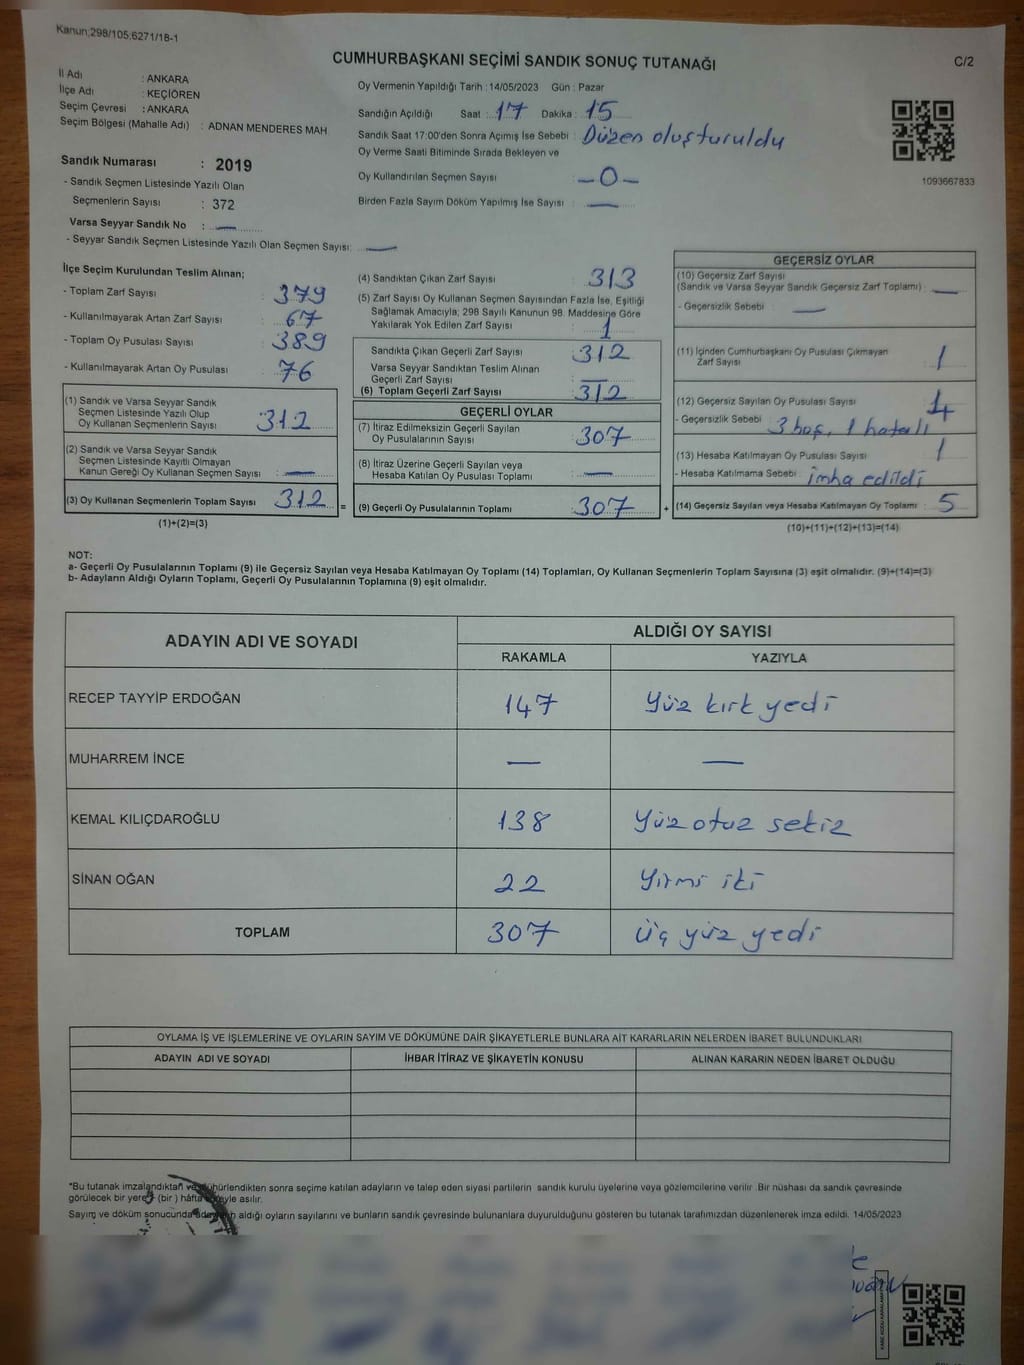 Kanun;298/105;6271/18-1
CUMHURBAŞKANI SEÇİMİ SANDIK SONUÇ TUTANAĞI
C/2
İl Adı : ANKARA
İlçe Adı : KEÇİÖREN
Seçim Çevresi : ANKARA
Seçim Bölgesi (Mahalle Adı) : ADNAN MENDERES MAH
Oy Vermenin Yapıldığı Tarih : 14/05/2023 Gün : Pazar
Sandığın Açıldığı Saat : 17 Dakika : 15
Sandık Saat 17:00'den Sonra Açımış İse Sebebi : Düzen oluşturuldu
Oy Verme Saati Bitiminde Sırada Bekleyen ve
Oy Kullandırılan Seçmen Sayısı : -0-
Birden Fazla Sayım Döküm Yapılmış İse Sayısı : —
1093667833
Sandık Numarası : 2019
- Sandık Seçmen Listesinde Yazılı Olan
Seçmenlerin Sayısı : 372
Varsa Seyyar Sandık No : —
- Seyyar Sandık Seçmen Listesinde Yazılı Olan Seçmen Sayısı: —
İlçe Seçim Kurulundan Teslim Alınan;
- Toplam Zarf Sayısı : 379
- Kullanılmayarak Artan Zarf Sayısı : 67
- Toplam Oy Pusulası Sayısı : 389
- Kullanılmayarak Artan Oy Pusulası : 76
(1) Sandık ve Varsa Seyyar Sandık
Seçmen Listesinde Yazılı Olup
Oy Kullanan Seçmenlerin Sayısı : 312
(2) Sandık ve Varsa Seyyar Sandık
Seçmen Listesinde Kayıtlı Olmayan
Kanun Gereği Oy Kullanan Seçmen Sayısı : —
(3) Oy Kullanan Seçmenlerin Toplam Sayısı : 312 =
(1)+(2)=(3)
(4) Sandıktan Çıkan Zarf Sayısı : 313
(5) Zarf Sayısı Oy Kullanan Seçmen Sayısından Fazla İse, Eşitliği
Sağlamak Amacıyla; 298 Sayılı Kanunun 98. Maddesine Göre
Yakılarak Yok Edilen Zarf Sayısı : 1
Sandıkta Çıkan Geçerli Zarf Sayısı : 312
Varsa Seyyar Sandıktan Teslim Alınan
Geçerli Zarf Sayısı : —
(6) Toplam Geçerli Zarf Sayısı : 312
GEÇERLİ OYLAR
(7) İtiraz Edilmeksizin Geçerli Sayılan
Oy Pusulalarının Sayısı : 307
(8) İtiraz Üzerine Geçerli Sayılan veya
Hesaba Katılan Oy Pusulası Toplamı : —
(9) Geçerli Oy Pusulalarının Toplamı : 307 +
GEÇERSİZ OYLAR
(10) Geçersiz Zarf Sayısı
(Sandık ve Varsa Seyyar Sandık Geçersiz Zarf Toplamı) : —
- Geçersizlik Sebebi : —
(11) İçinden Cumhurbaşkanı Oy Pusulası Çıkmayan
Zarf Sayısı : 1
(12) Geçersiz Sayılan Oy Pusulası Sayısı : 4
- Geçersizlik Sebebi : 3 boş, 1 hatalı
(13) Hesaba Katılmayan Oy Pusulası Sayısı : 1
- Hesaba Katılmama Sebebi : imha edildi
(14) Geçersiz Sayılan veya Hesaba Katılmayan Oy Toplamı : 5
(10)+(11)+(12)+(13)=(14)
NOT:
a- Geçerli Oy Pusulalarının Toplamı (9) ile Geçersiz Sayılan veya Hesaba Katılmayan Oy Toplamı (14) Toplamları, Oy Kullanan Seçmenlerin Toplam Sayısına (3) eşit olmalıdır. (9)+(14)=(3)
b- Adayların Aldığı Oyların Toplamı, Geçerli Oy Pusulalarının Toplamına (9) eşit olmalıdır.
ADAYIN ADI VE SOYADI
ALDIĞI OY SAYISI
RAKAMLA YAZIYLA
RECEP TAYYİP ERDOĞAN 147 Yüz kırk yedi
MUHARREM İNCE — —
KEMAL KILIÇDAROĞLU 138 Yüz otuz sekiz
SİNAN OĞAN 22 Yirmi iki
TOPLAM 307 Üç yüz yedi
OYLAMA İŞ VE İŞLEMLERİNE VE OYLARIN SAYIM VE DÖKÜMÜNE DAİR ŞİKAYETLERLE BUNLARA AİT KARARLARIN NELERDEN İBARET BULUNDUKLARI
ADAYIN ADI VE SOYADI İHBAR İTİRAZ VE ŞİKAYETİN KONUSU ALINAN KARARIN NEDEN İBARET OLDUĞU
*Bu tutanak imzalandıktan ve mühürlendikten sonra seçime katılan adayların ve talep eden siyasi partilerin sandık kurulu üyelerine veya gözlemcilerine verilir. Bir nüshası da sandık çevresinde
görülecek bir yere (bir) hafta süreyle asılır.
Sayım ve döküm sonucunda adayların aldığı oyların sayılarını ve bunların sandık çevresinde bulunanlara duyurulduğunu gösteren bu tutanak tarafımızdan düzenlenerek imza edildi. 14/05/2023